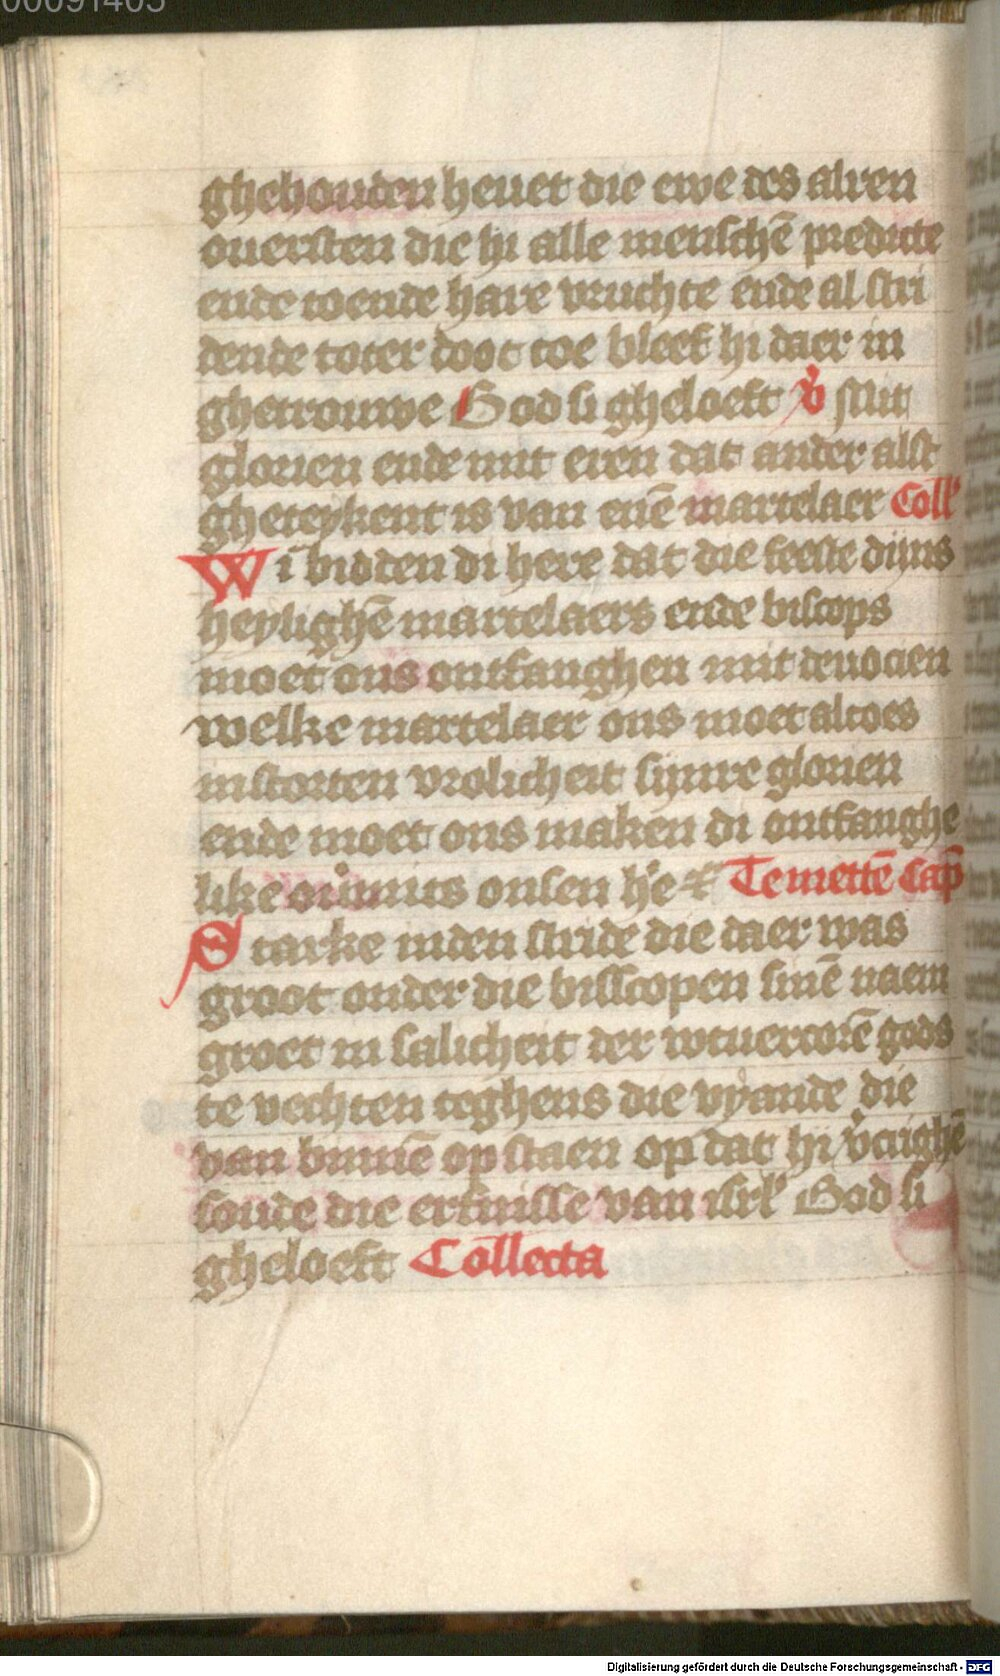 00091405
ghehouden heuet die ewe des alren
ouersten die hi alle menschē predicte
ende toende hare vruchte ende al stri
dende toter doot toe bleef hi daer in
ghetrouwe God si gheloeft v̄ Mit
glorien ende mit eren dat ander alst
gheteykent is van enē martelaer Coll'
Wi bidden di here dat die feeste dijns
heylighē martelaers ende biscops
moet ons ontfanghen mit deuocien
welke martelaer ons moet altoes
instorten vrolicheit synre glorien
ende moet ons maken di ontfanghe
like ouermits onsen h'e Te mettē Cap̄
Starke inden stride die daer was
groot onder die bisscopen sinē naem
groet in salicheit der wtuercorē gods
te vechten teghens die vyande die
van binnē op staen op dat hi v'crighē
soude die erfnisse van isrl' God si
gheloeft Collecta
Digitalisierung gefördert durch die Deutsche Forschungsgemeinschaft - DFG